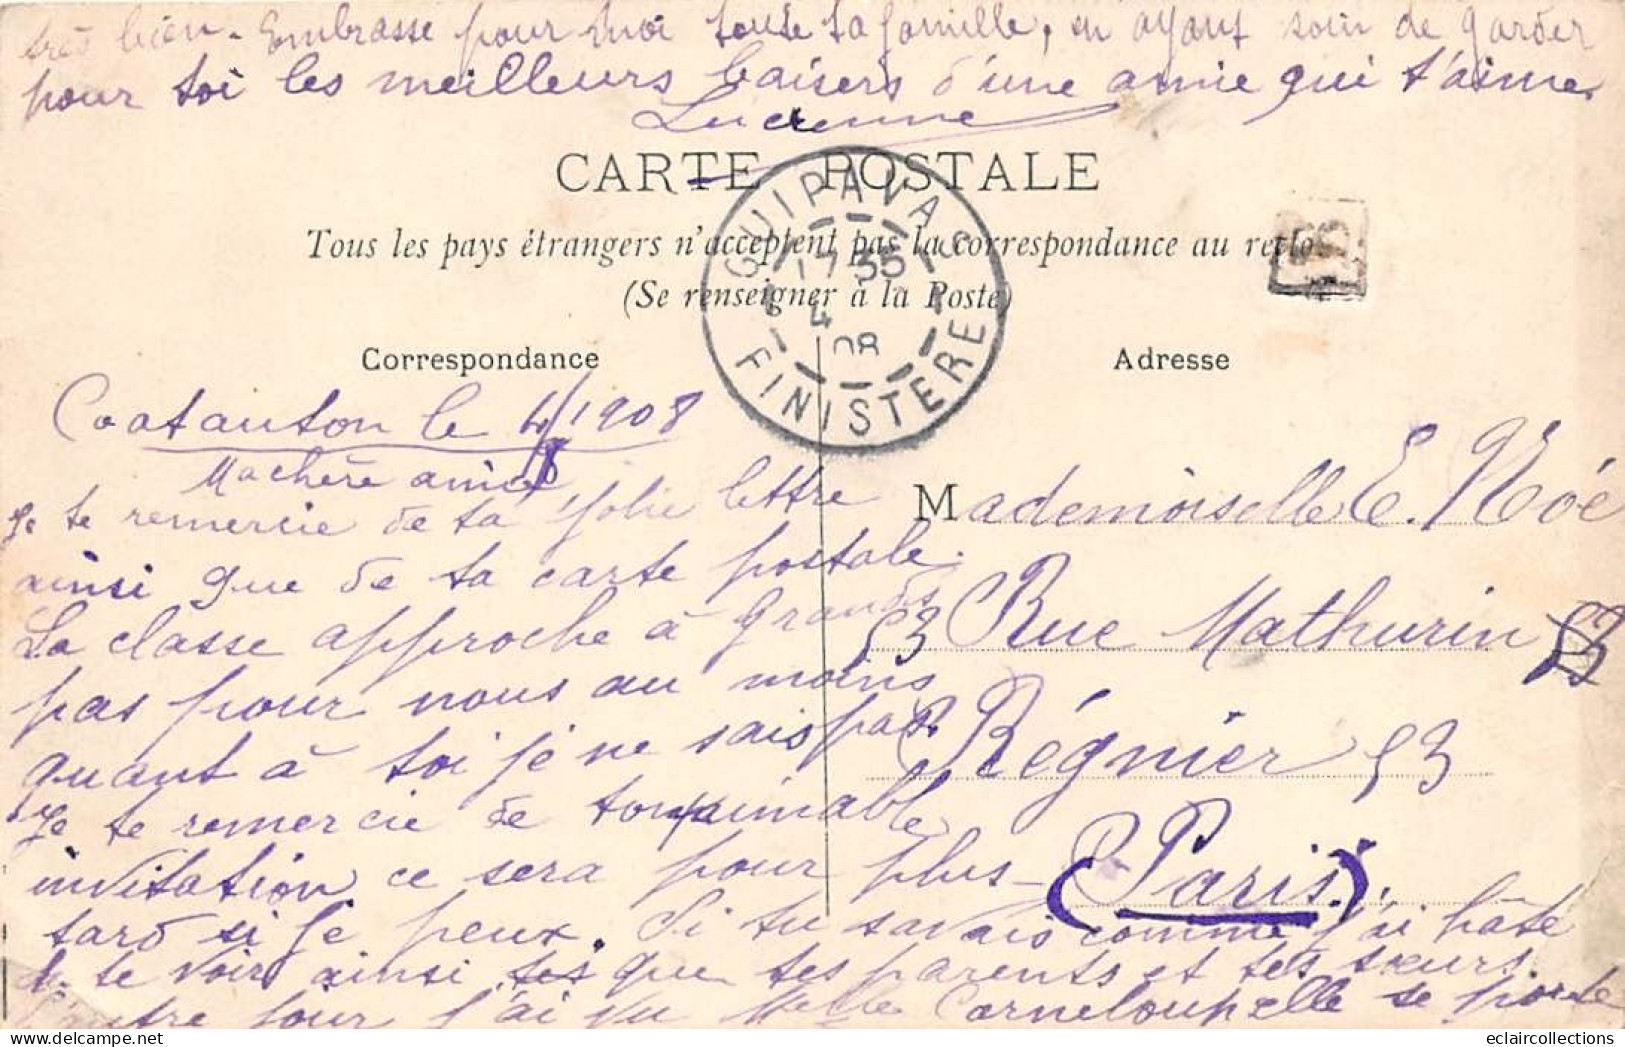 très bien. Embrasse pour moi toute ta famille, en ayant soin de garder
pour toi les meilleurs baisers d'une amie qui t'aime
Lucienne
CARTE POSTALE
Tous les pays étrangers n'acceptent pas la correspondance au recto
(Se renseigner à la Poste)
GUIPAVAS
17 35
4
08
FINISTERE
Correspondance
Coatanton le 4/1908
8
Ma chère amie
Je te remercie de ta jolie lettre
ainsi que de ta carte postale.
La classe approche à grands
pas pour nous au moins
quant à toi je ne sais pas.
Je te remercie de ton aimable
invitation ce sera pour plus
tard si je peux. Si tu savais comme j'ai hâte
de te voir ainsi que tes parents et tes sœurs.
L'autre jour j'ai vu Melle Corneloup elle se porte
Adresse
Mademoiselle E. Noé
53 Rue Mathurin 53
Régnier 53
(Paris.)
eclaircollections@delcampe.net